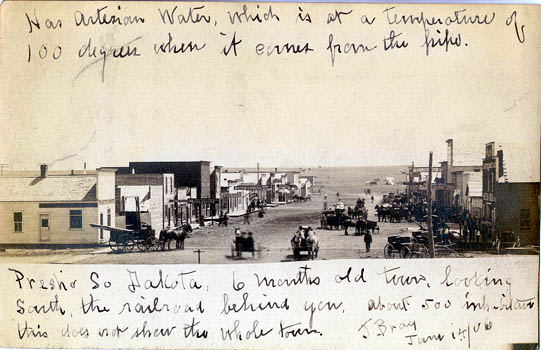 Has Artesian Water, which is at a temperature of
100 degrees when it comes from the pipe.
Presho So Dakota, 6 months old town, looking
South, the railroad behind you, about 500 inhabitants
this does not show the whole town. J Bray
June 14/06